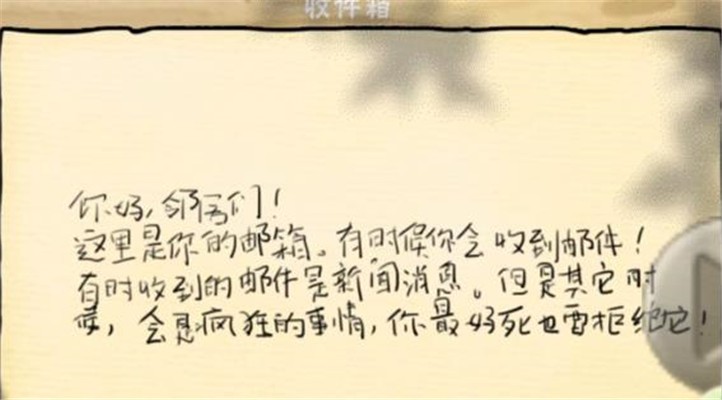 收件箱
你好,邻居们!
这里是你的邮箱。有时候你会收到邮件!
有时收到的邮件是新闻消息。但是其它时
候,会是疯狂的事情,你最好死也要拒绝它!